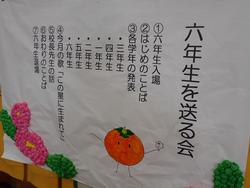 六年生を送る会
①六年生入場
②はじめのことば
③各学年の発表
・三年生
・四年生
・一年生
・二年生
・五年生
・六年生
④今月の歌「この星に生まれて」
⑤校長先生の話
⑥おわりのことば
⑦六年生退場